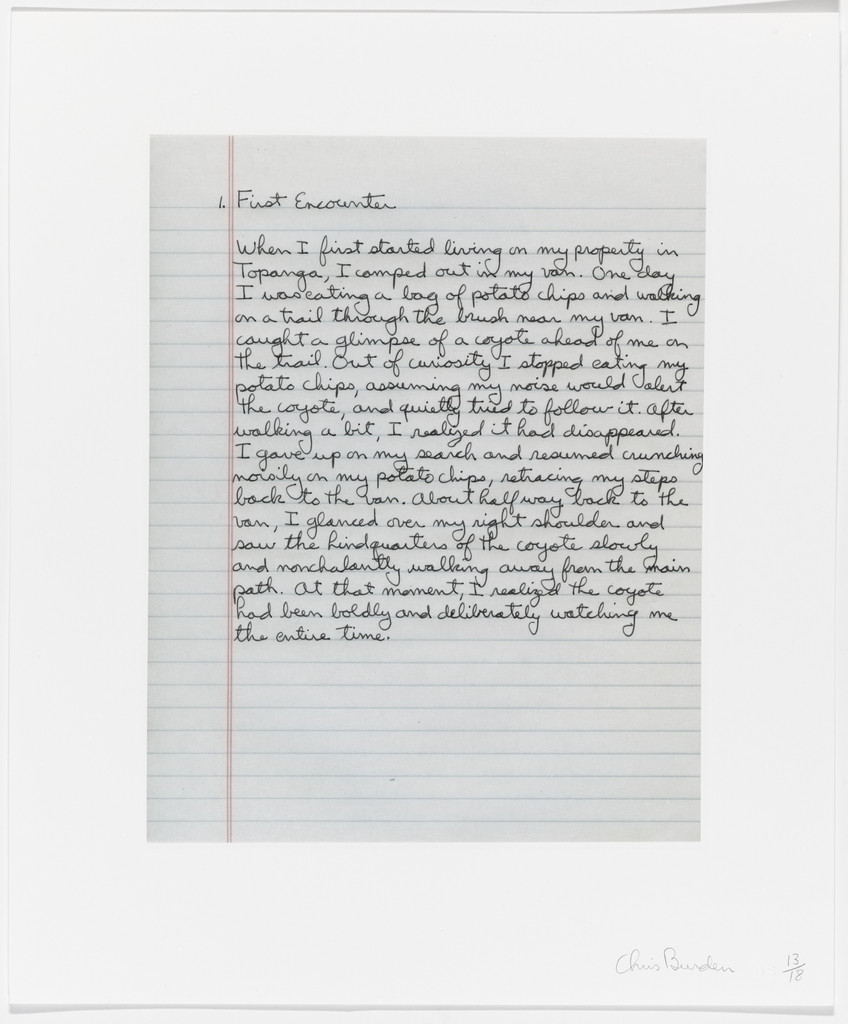 1. First Encounter
When I first started living on my property in
Topanga, I camped out in my van. One day
I was eating a bag of potato chips and walking
on a trail through the brush near my van. I
caught a glimpse of a coyote ahead of me on
the trail. Out of curiosity I stopped eating my
potato chips, assuming my noise would alert
the coyote, and quietly tried to follow it. After
walking a bit, I realized it had disappeared.
I gave up on my search and resumed crunching
noisily on my potato chips, retracing my steps
back to the van. About halfway back to the
van, I glanced over my right shoulder and
saw the hindquarters of the coyote slowly
and nonchalantly walking away from the main
path. At that moment, I realized the coyote
had been boldly and deliberately watching me
the entire time.
Chris Burden 13/18